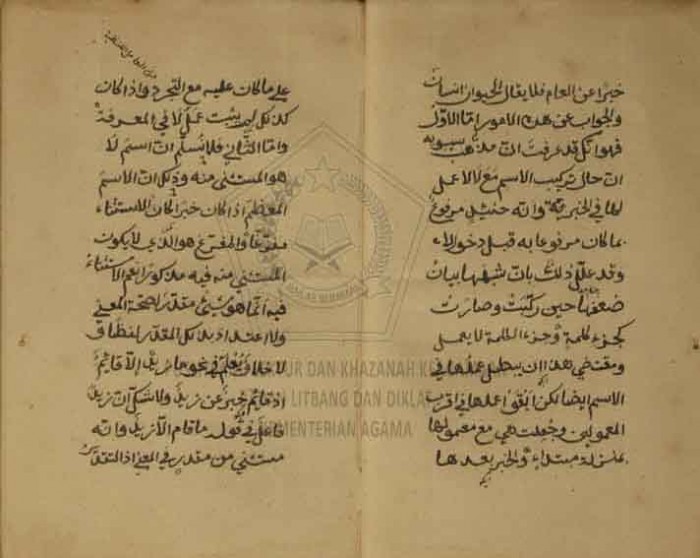 خبرًا عن العام فلا يقال الحيوان انسان
والجواب عن هذه الامور اما الاوّل
فهو انك قد عرفت انّ مذهب سيبويه
انّ حال تركيب الاسم مع لا لا عمل
لها في الخبرية وانّه حينئذٍ مرفوعٌ
بما كان مرفوعا به قبل دخول لاء
وقد علّل ذلك بانّ شبهها بانّ
ضعف حين ركّبت وصارت
كجزء كلمة وجزء الكلمة لا يعمل
ومقتضى هذا ان يبطل عملها في
الاسم ايضا لكن ابقوا عملها في اقرب
المعمولين وجعلت هي مع معمولها
بمنزلة مبتداء والخبر بعدها
على ما كان عليه مع التجرد واذا كان
كذلك لم يثبت عمل لا في المعرفة
وامّا الثاني فلا نسلّم انّ اسم لا
هو المستثنى منه وذلك انّ الاسم
المعظم اذا كان خبرًا كان الاستثناء
مفرّغًا والمفرّغ هو الّذي لا يكون
المستثنى منه فيه مذكورا نعم الاستثناء
فيه انّما هو من شيئ مقدّر لصحّة المعنى
ولا اعتداد بذلك المقدّر لفظًا
لا خلاف يُعلم في نحو ما زيدٌ الّا قائمٌ
اذ قائم خبرٌ عن زيد ولا شك ان زيدًا
فاعل في قوله ما قام الّا زيد وانّه
مستثنى من مقدر في المعنى اذ التقدير
LITBANG DAN DIKLAT
KEMENTERIAN AGAMA